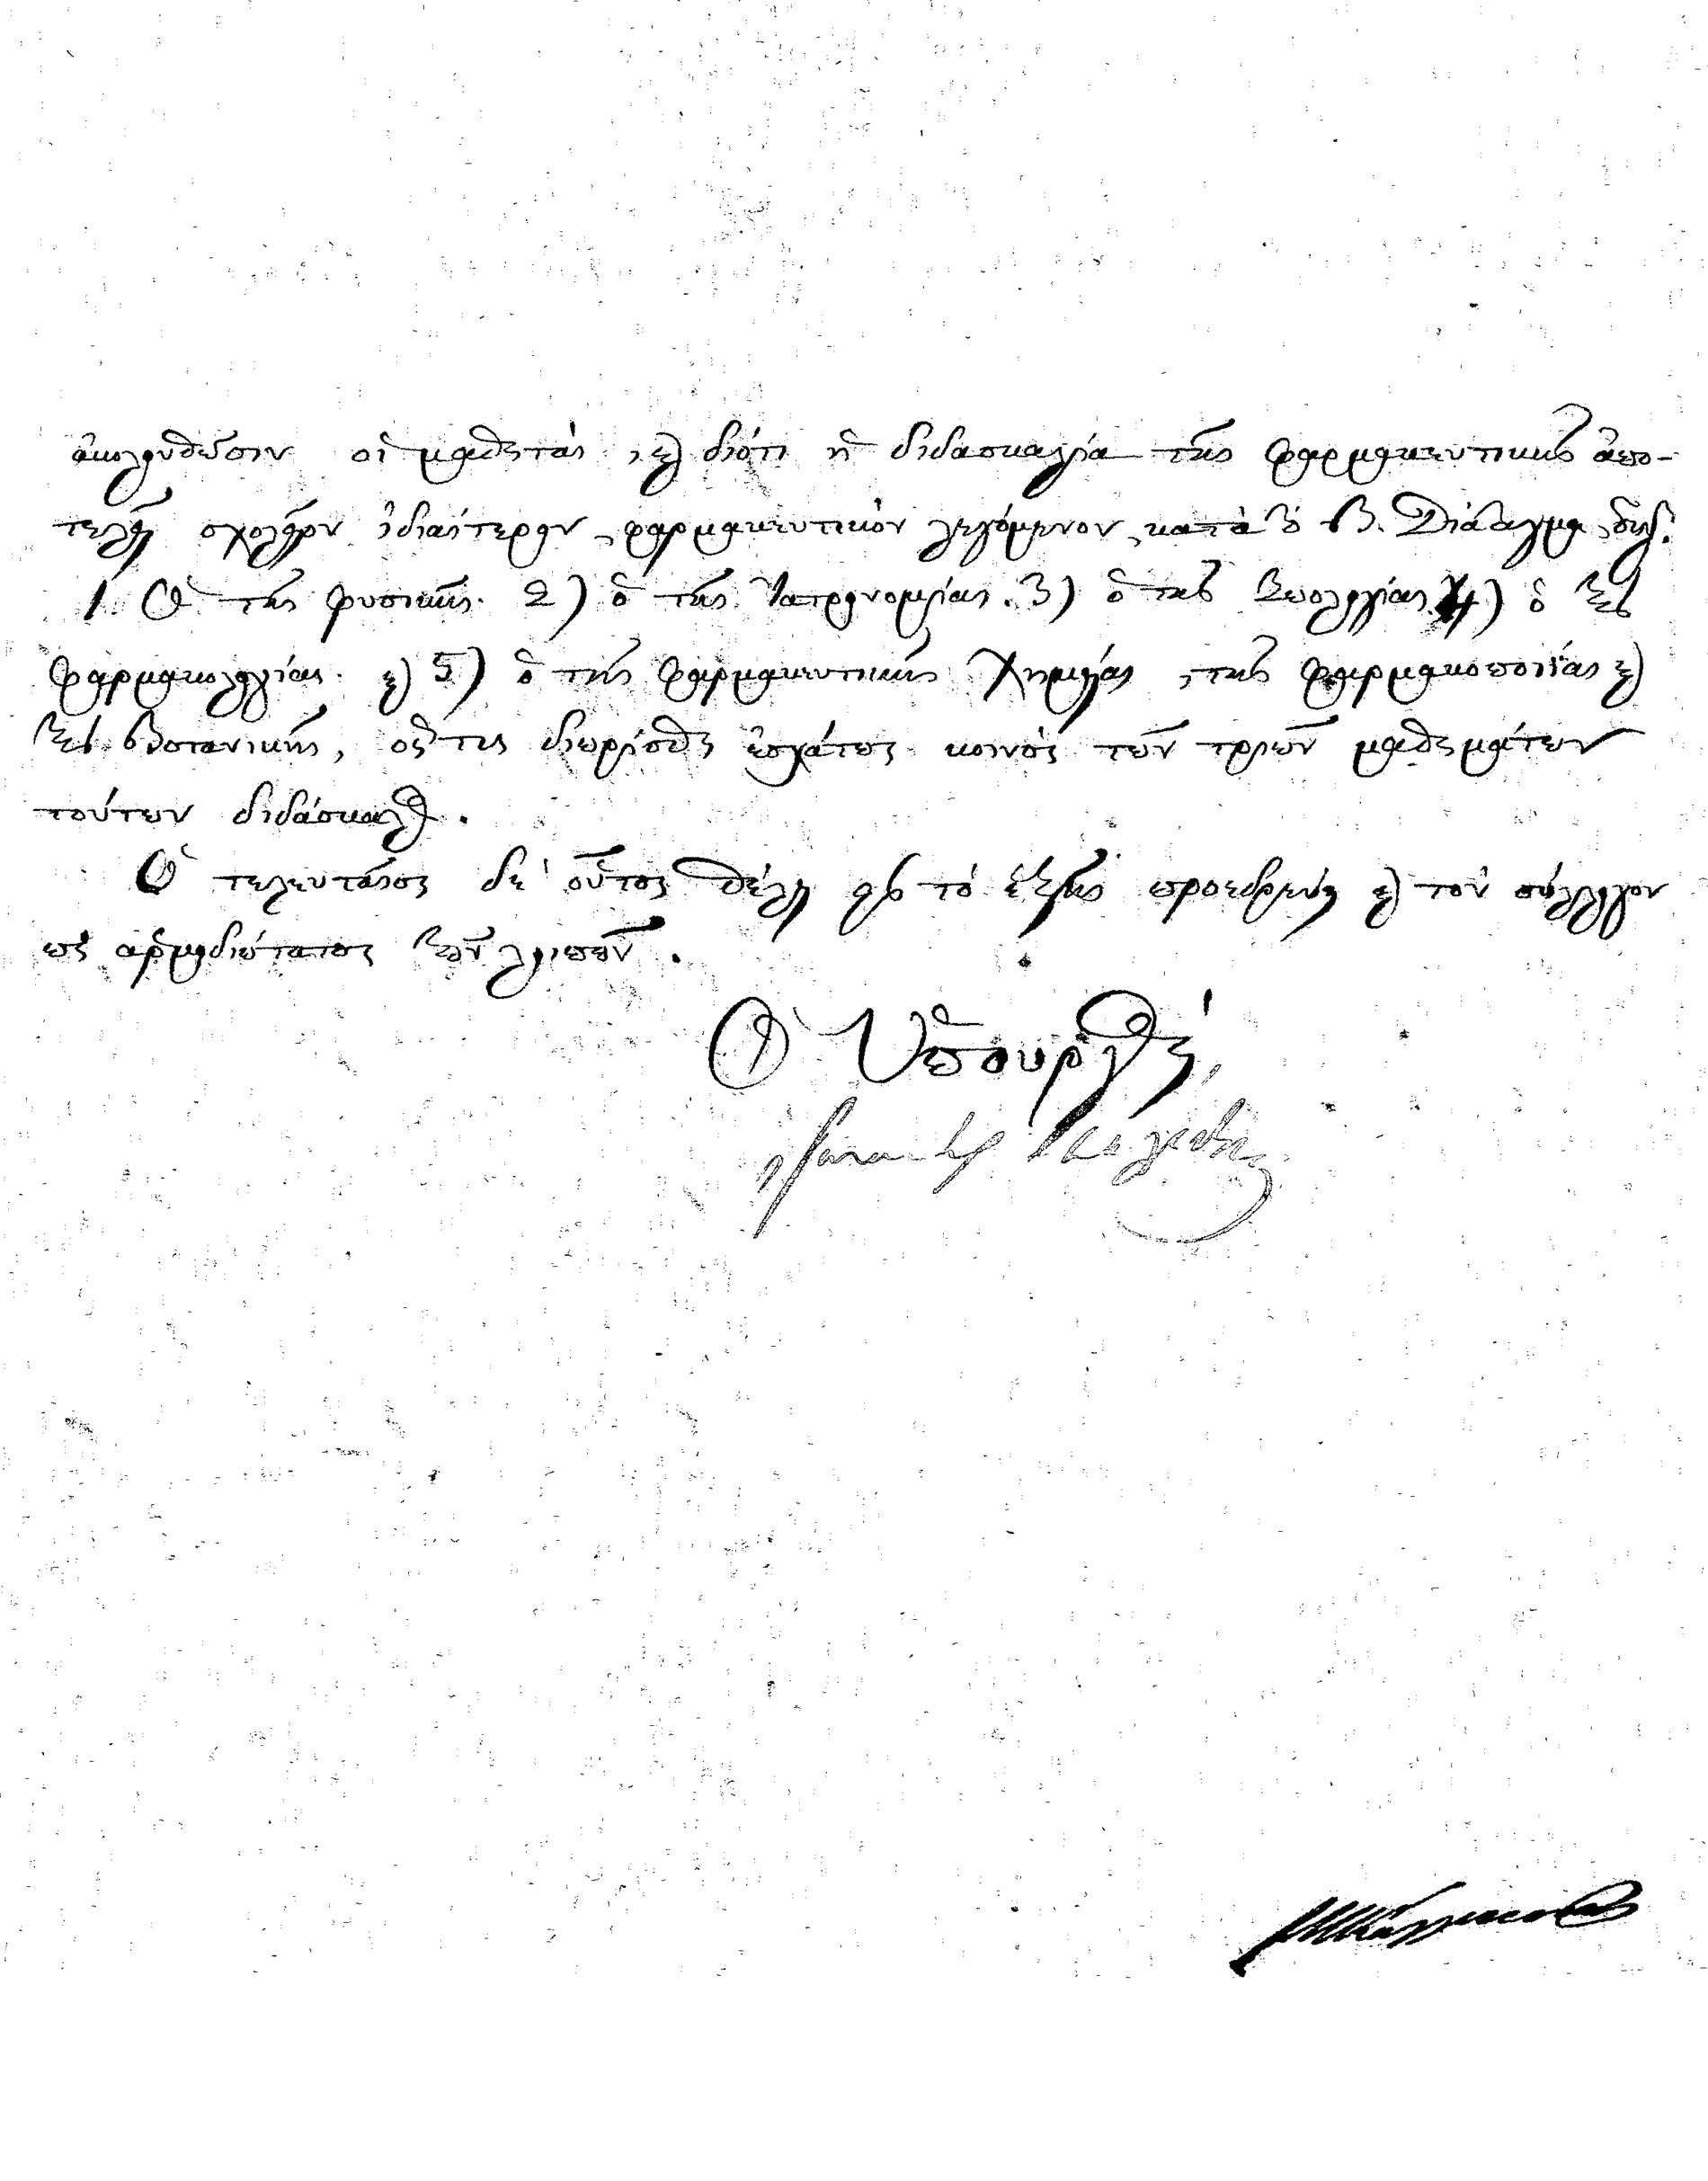 ἀκολουθῶσιν οἱ μαθηταὶ, καὶ διότι ἡ διδασκαλία τῆς φαρμακευτικῆς ἀπο-
τελεῖ σχολεῖον ἰδιαίτερον, φαρμακευτικὸν λεγόμενον, κατὰ τὸ Β. Διάταγμα, δηλ:
1. Ὁ τῆς φυσικῆς. 2) ὁ τῆς Ἰατρονομίας. 3) ὁ τῆς Ζωολογίας. 4) ὁ τῆς
φαρμακολογίας. καὶ 5) ὁ τῆς φαρμακευτικῆς Χημείας, τῆς φαρμακοποιίας καὶ
τῆς βοτανικῆς, ὅς τις διωρίσθη ἐσχάτως κοινὸς τῶν τριῶν μαθημάτων
τούτων διδάσκαλος.
Ὁ τελευταῖος δὲ οὗτος θέλει εἰς τὸ ἑξῆς προεδρεύει καὶ τὸν σύλλογον
ὡς ἁρμοδιώτατος τῶν λοιπῶν.
Ὁ Ὑπουργός,